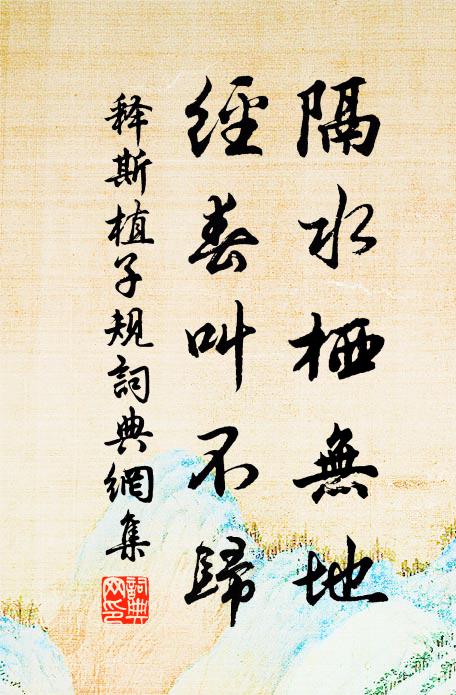 隔水栖無地
經春叫不歸
释斯植子規詞典網集
詞典